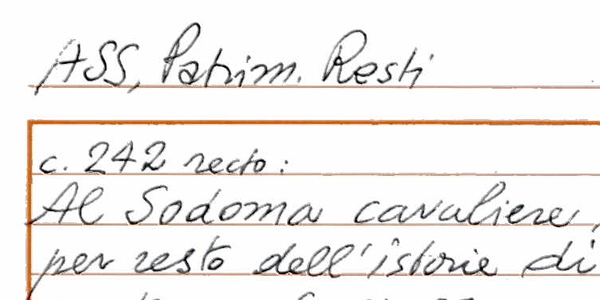 ASS, Patrim. Resti
c. 242 recto:
Al Sodoma cavaliere,
per resto dell'istorie di